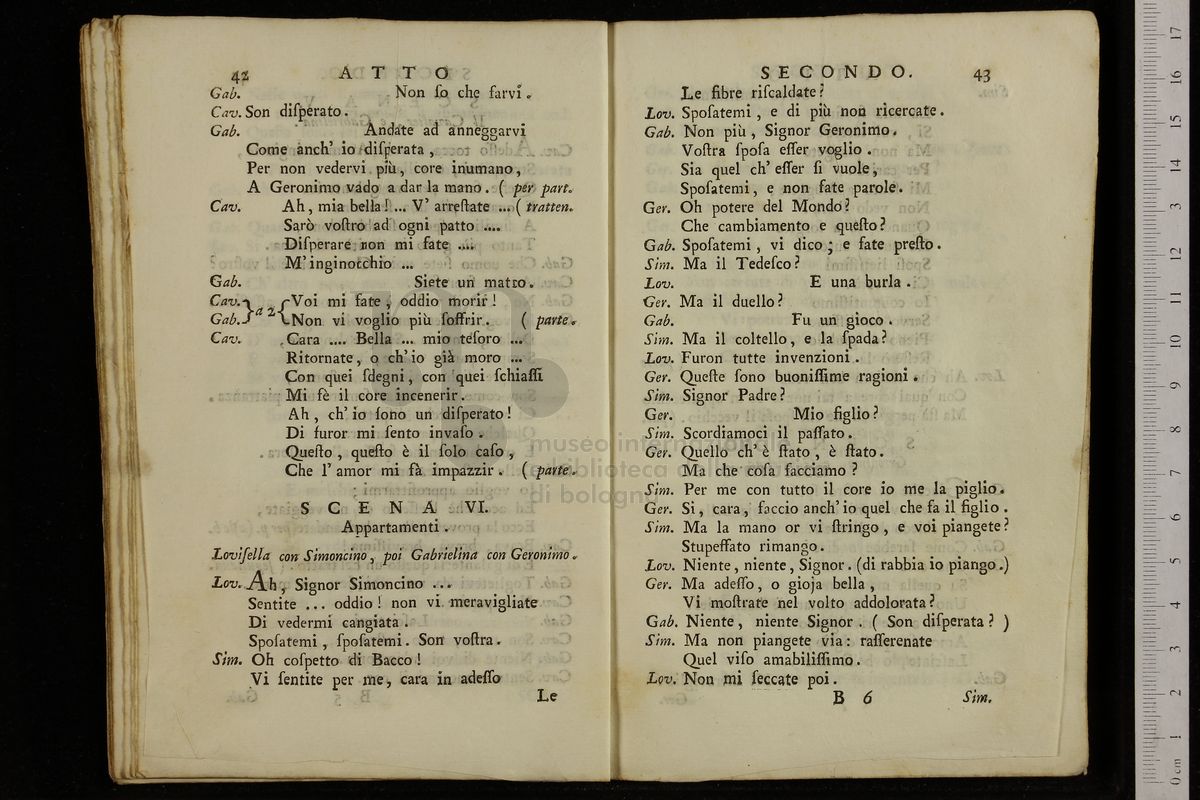 42 ATTO
Gab. Non ſo che farvi.
Cav. Son diſperato.
Gab. Andate ad anneggarvi
Come anch' io diſperata,
Per non vedervi più, core inumano,
A Geronimo vado a dar la mano. ( per part.
Cav. Ah, mia bella! ... V' arreſtate ... ( tratten.
Sarò voſtro ad ogni patto ....
Diſperare non mi fate ....
M' inginocchio ...
Gab. Siete un matto.
Cav. } a 2 { Voi mi fate, oddio morir!
Gab. } a 2 { Non vi voglio più ſoffrir. ( parte.
Cav. Cara .... Bella ... mio teſoro ...
Ritornate, o ch' io già moro ...
Con quei ſdegni, con quei ſchiaffi
Mi fè il core incenerir.
Ah, ch' io ſono un diſperato!
Di furor mi ſento invaſo.
Queſto, queſto è il ſolo caſo,
Che l' amor mi fà impazzir. ( parte.
SCENA VI.
Appartamenti.
Loviſella con Simoncino, poi Gabrielina con Geronimo.
Lov. Ah, Signor Simoncino ...
Sentite ... oddio! non vi meravigliate
Di vedermi cangiata.
Spoſatemi, ſpoſatemi. Son voſtra.
Sim. Oh coſpetto di Bacco!
Vi ſentite per me, cara in adeſſo
Le
SECONDO. 43
Le fibre riſcaldate?
Lov. Spoſatemi, e di più non ricercate.
Gab. Non più, Signor Geronimo.
Voſtra ſpoſa eſſer voglio.
Sia quel ch' eſſer ſi vuole,
Spoſatemi, e non fate parole.
Ger. Oh potere del Mondo?
Che cambiamento e queſto?
Gab. Spoſatemi, vi dico; e fate preſto.
Sim. Ma il Tedeſco?
Lov. E una burla.
Ger. Ma il duello?
Gab. Fu un gioco.
Sim. Ma il coltello, e la ſpada?
Lov. Furon tutte invenzioni.
Ger. Queſte ſono buoniſſime ragioni.
Sim. Signor Padre?
Ger. Mio figlio?
Sim. Scordiamoci il paſſato.
Ger. Quello ch' è ſtato, è ſtato.
Ma che coſa facciamo?
Sim. Per me con tutto il core io me la piglio.
Ger. Si, cara, faccio anch' io quel che fa il figlio.
Sim. Ma la mano or vi ſtringo, e voi piangete?
Stupeffato rimango.
Lov. Niente, niente, Signor. (di rabbia io piango.)
Ger. Ma adeſſo, o gioja bella,
Vi moſtrate nel volto addolorata?
Gab. Niente, niente Signor. ( Son diſperata? )
Sim. Ma non piangete via: raſſerenate
Quel viſo amabiliſſimo.
Lov. Non mi ſeccate poi.
B 6 Sim.
museo internazionale
e biblioteca della musica
di bologna
0 cm 1 2 3 4 5 6 7 8 9 10 11 12 13 14 15 16 17